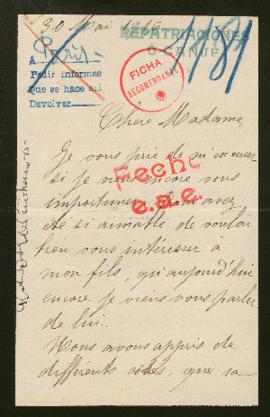 30 Mai 1916
REPATRIACIONES
O CANJE
1181
A Paris
Pedir informes
que se hace así
Devolver
FICHA
RECOMENDANTE
Chère Madame,
Je vous prie de m'excuser
si je viens encore vous
importuner. Vous avez
Fecho
e.a.e.
été si aimable de vouloir
bien vous intéresser à
mon fils, qu'aujourd'hui
encore je viens vous parler
de lui.
Nous avons appris de
différents côtés, que sa